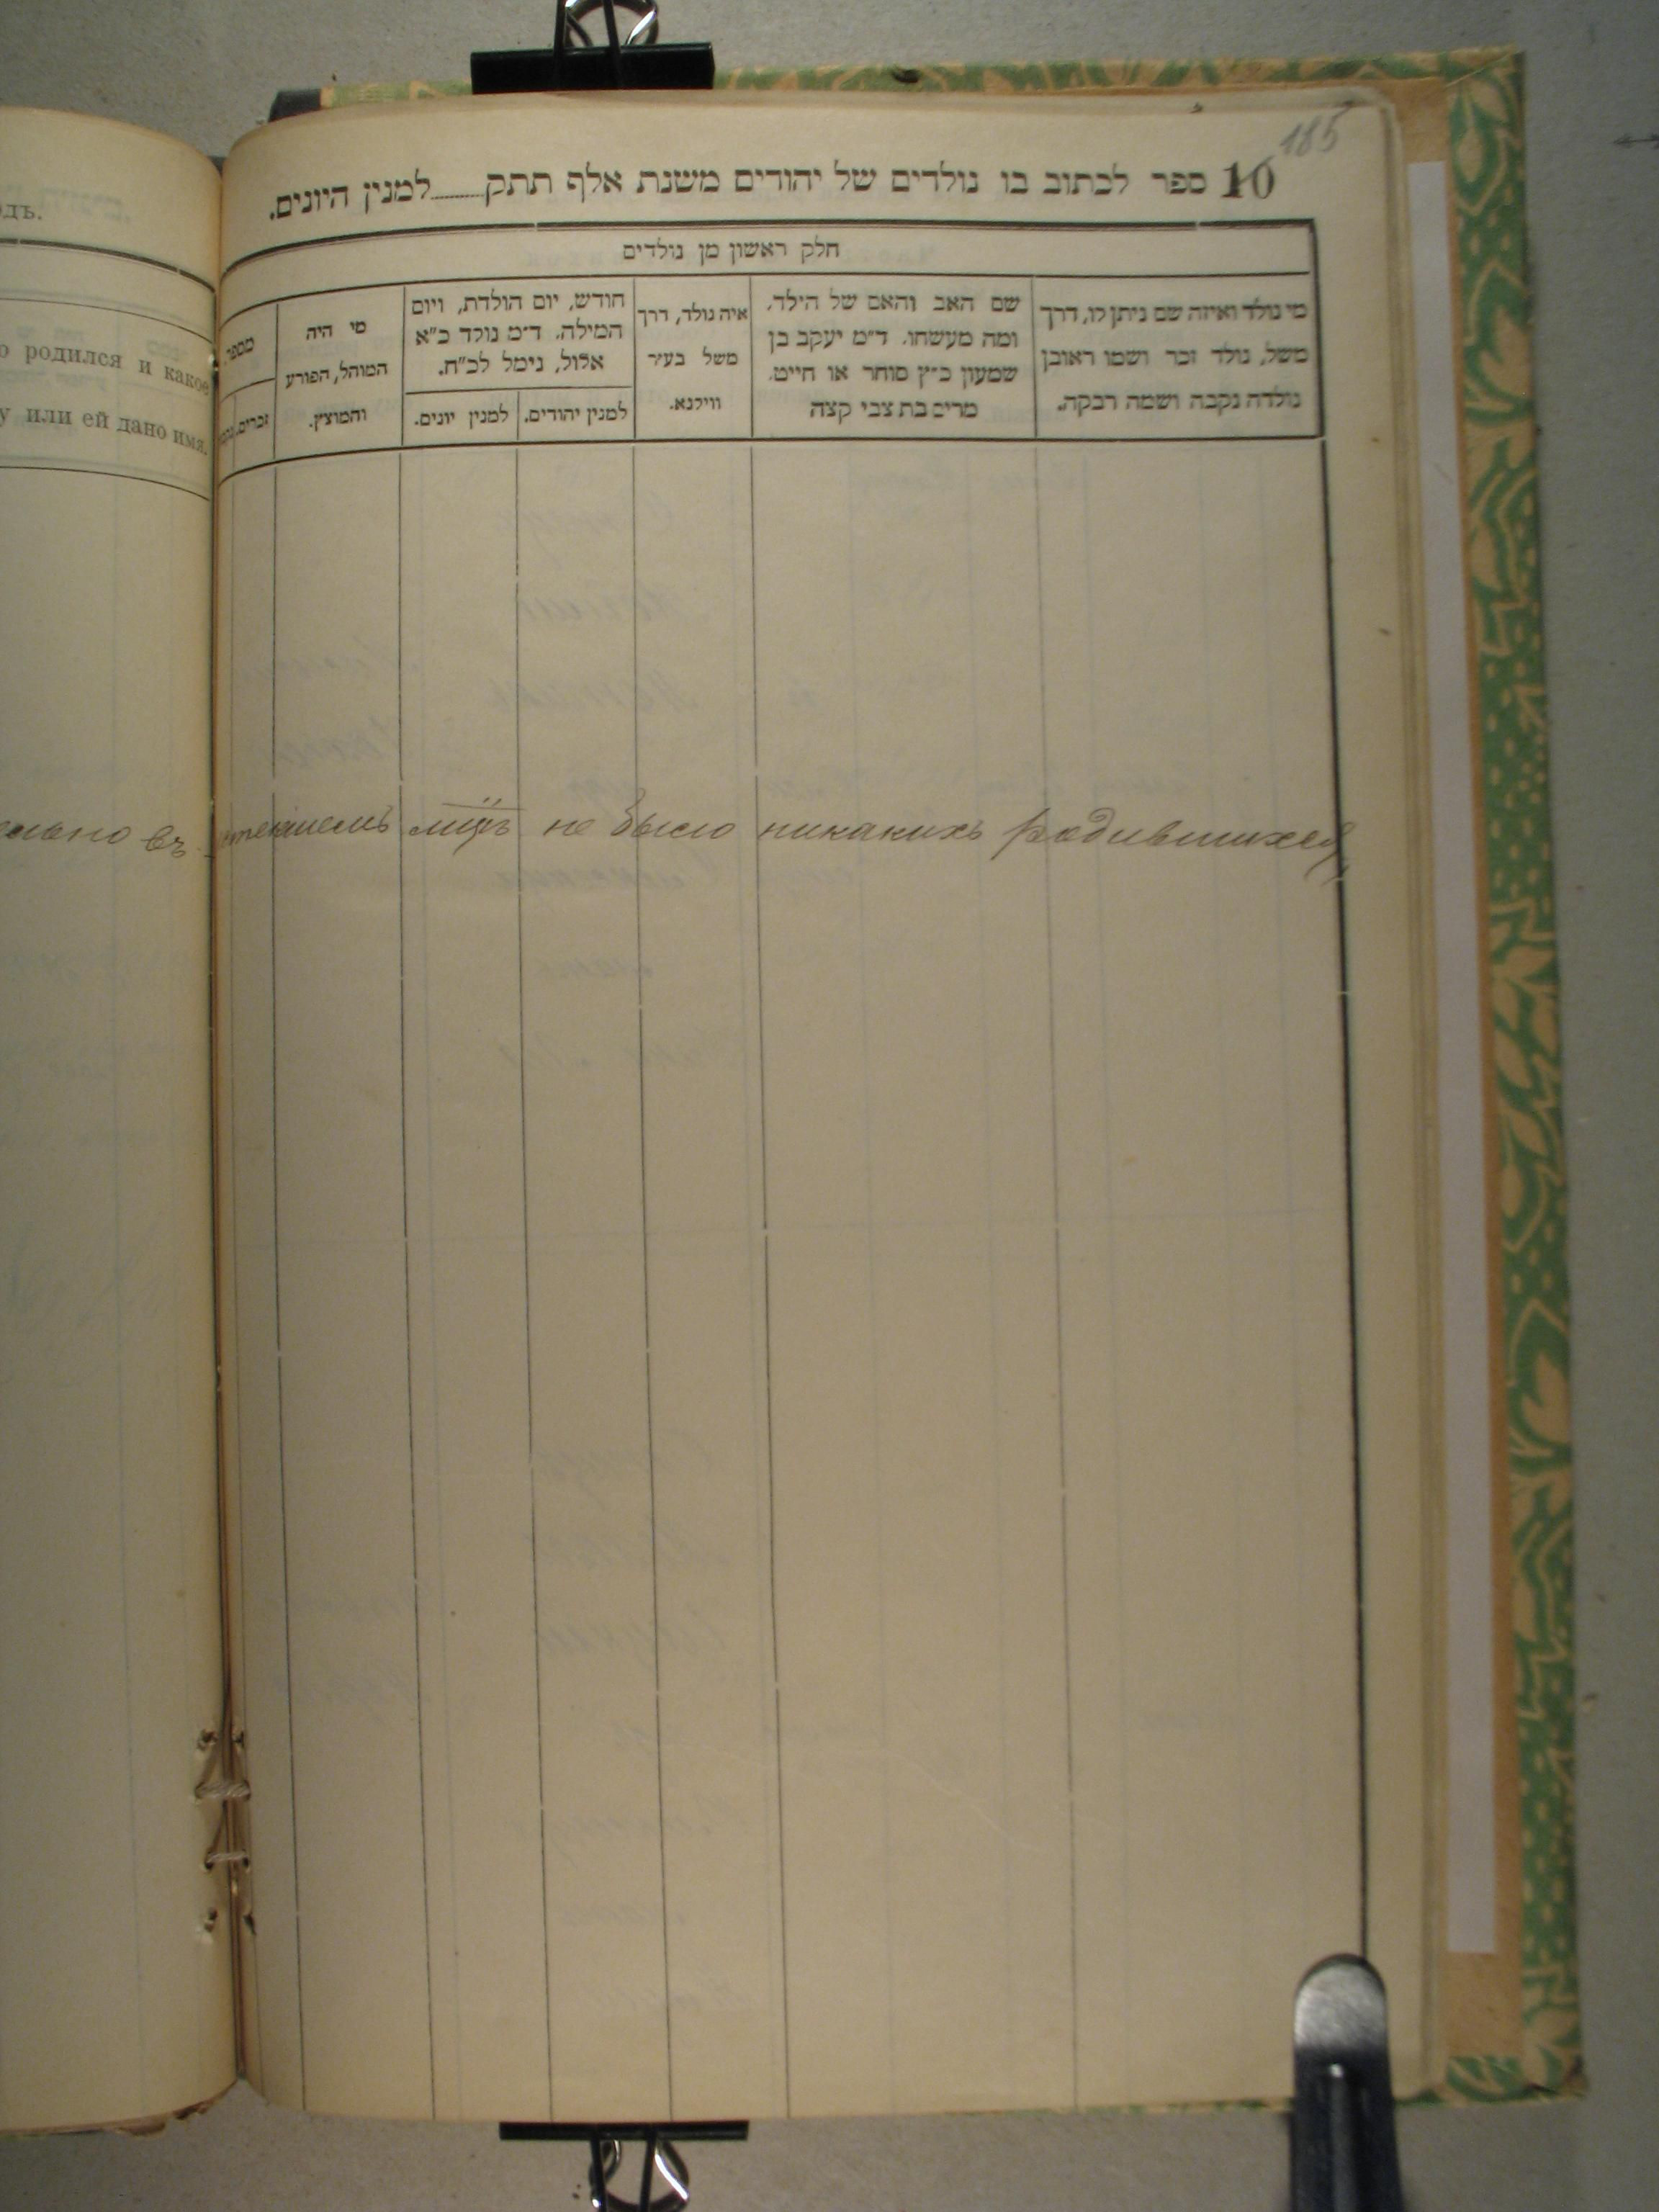 185
10 ספר לכתוב בו נולדים של יהודים משנת אלף תתק........למנין היונים.
חלק ראשון מן נולדים
מי נולד ואיזה שם ניתן לו, דרך
משל, נולד זכר ושמו ראובן
נולדה נקבה ושמה רבקה.
שם האב והאם של הילד,
ומה מעשהו. ד״מ יעקב בן
שמעון כ״ץ סוחר או חייט.
מרים בת צבי קצה
איה נולד, דרך
משל בעיר
ווילנא.
חודש, יום הולדת, ויום
המילה. ד״מ נולד כ״א
אלול, נימל לכ״ח.
למנין יהודים.
למנין יונים.
מי היה
המוהל, הפורע
והמוצץ.
מספר
זכרים.
дъ.
о родился и какое
у или ей дано имя.
въ истекшемъ м҃цѣ не было никакихъ родившихся